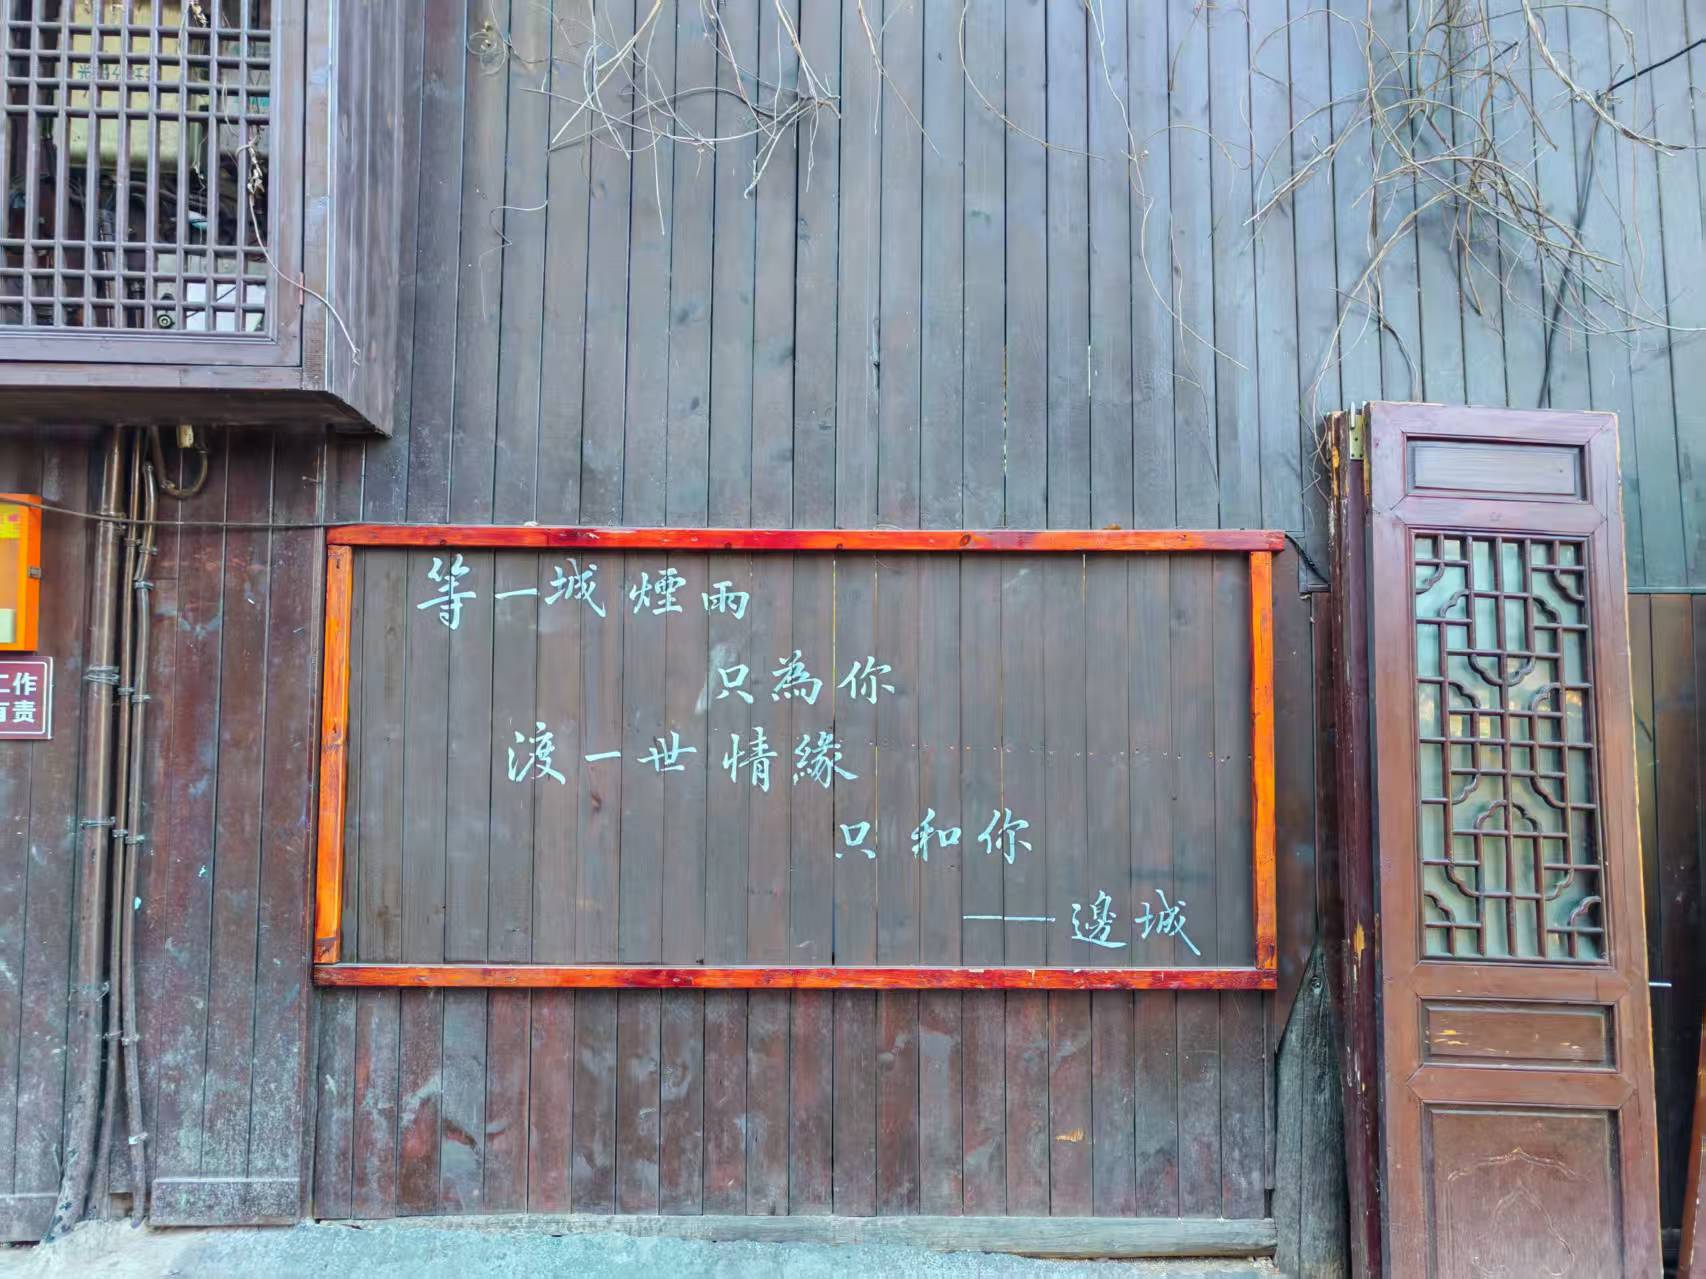 等一城煙雨
只為你
渡一世情緣
只和你
——邊城
工作
有责